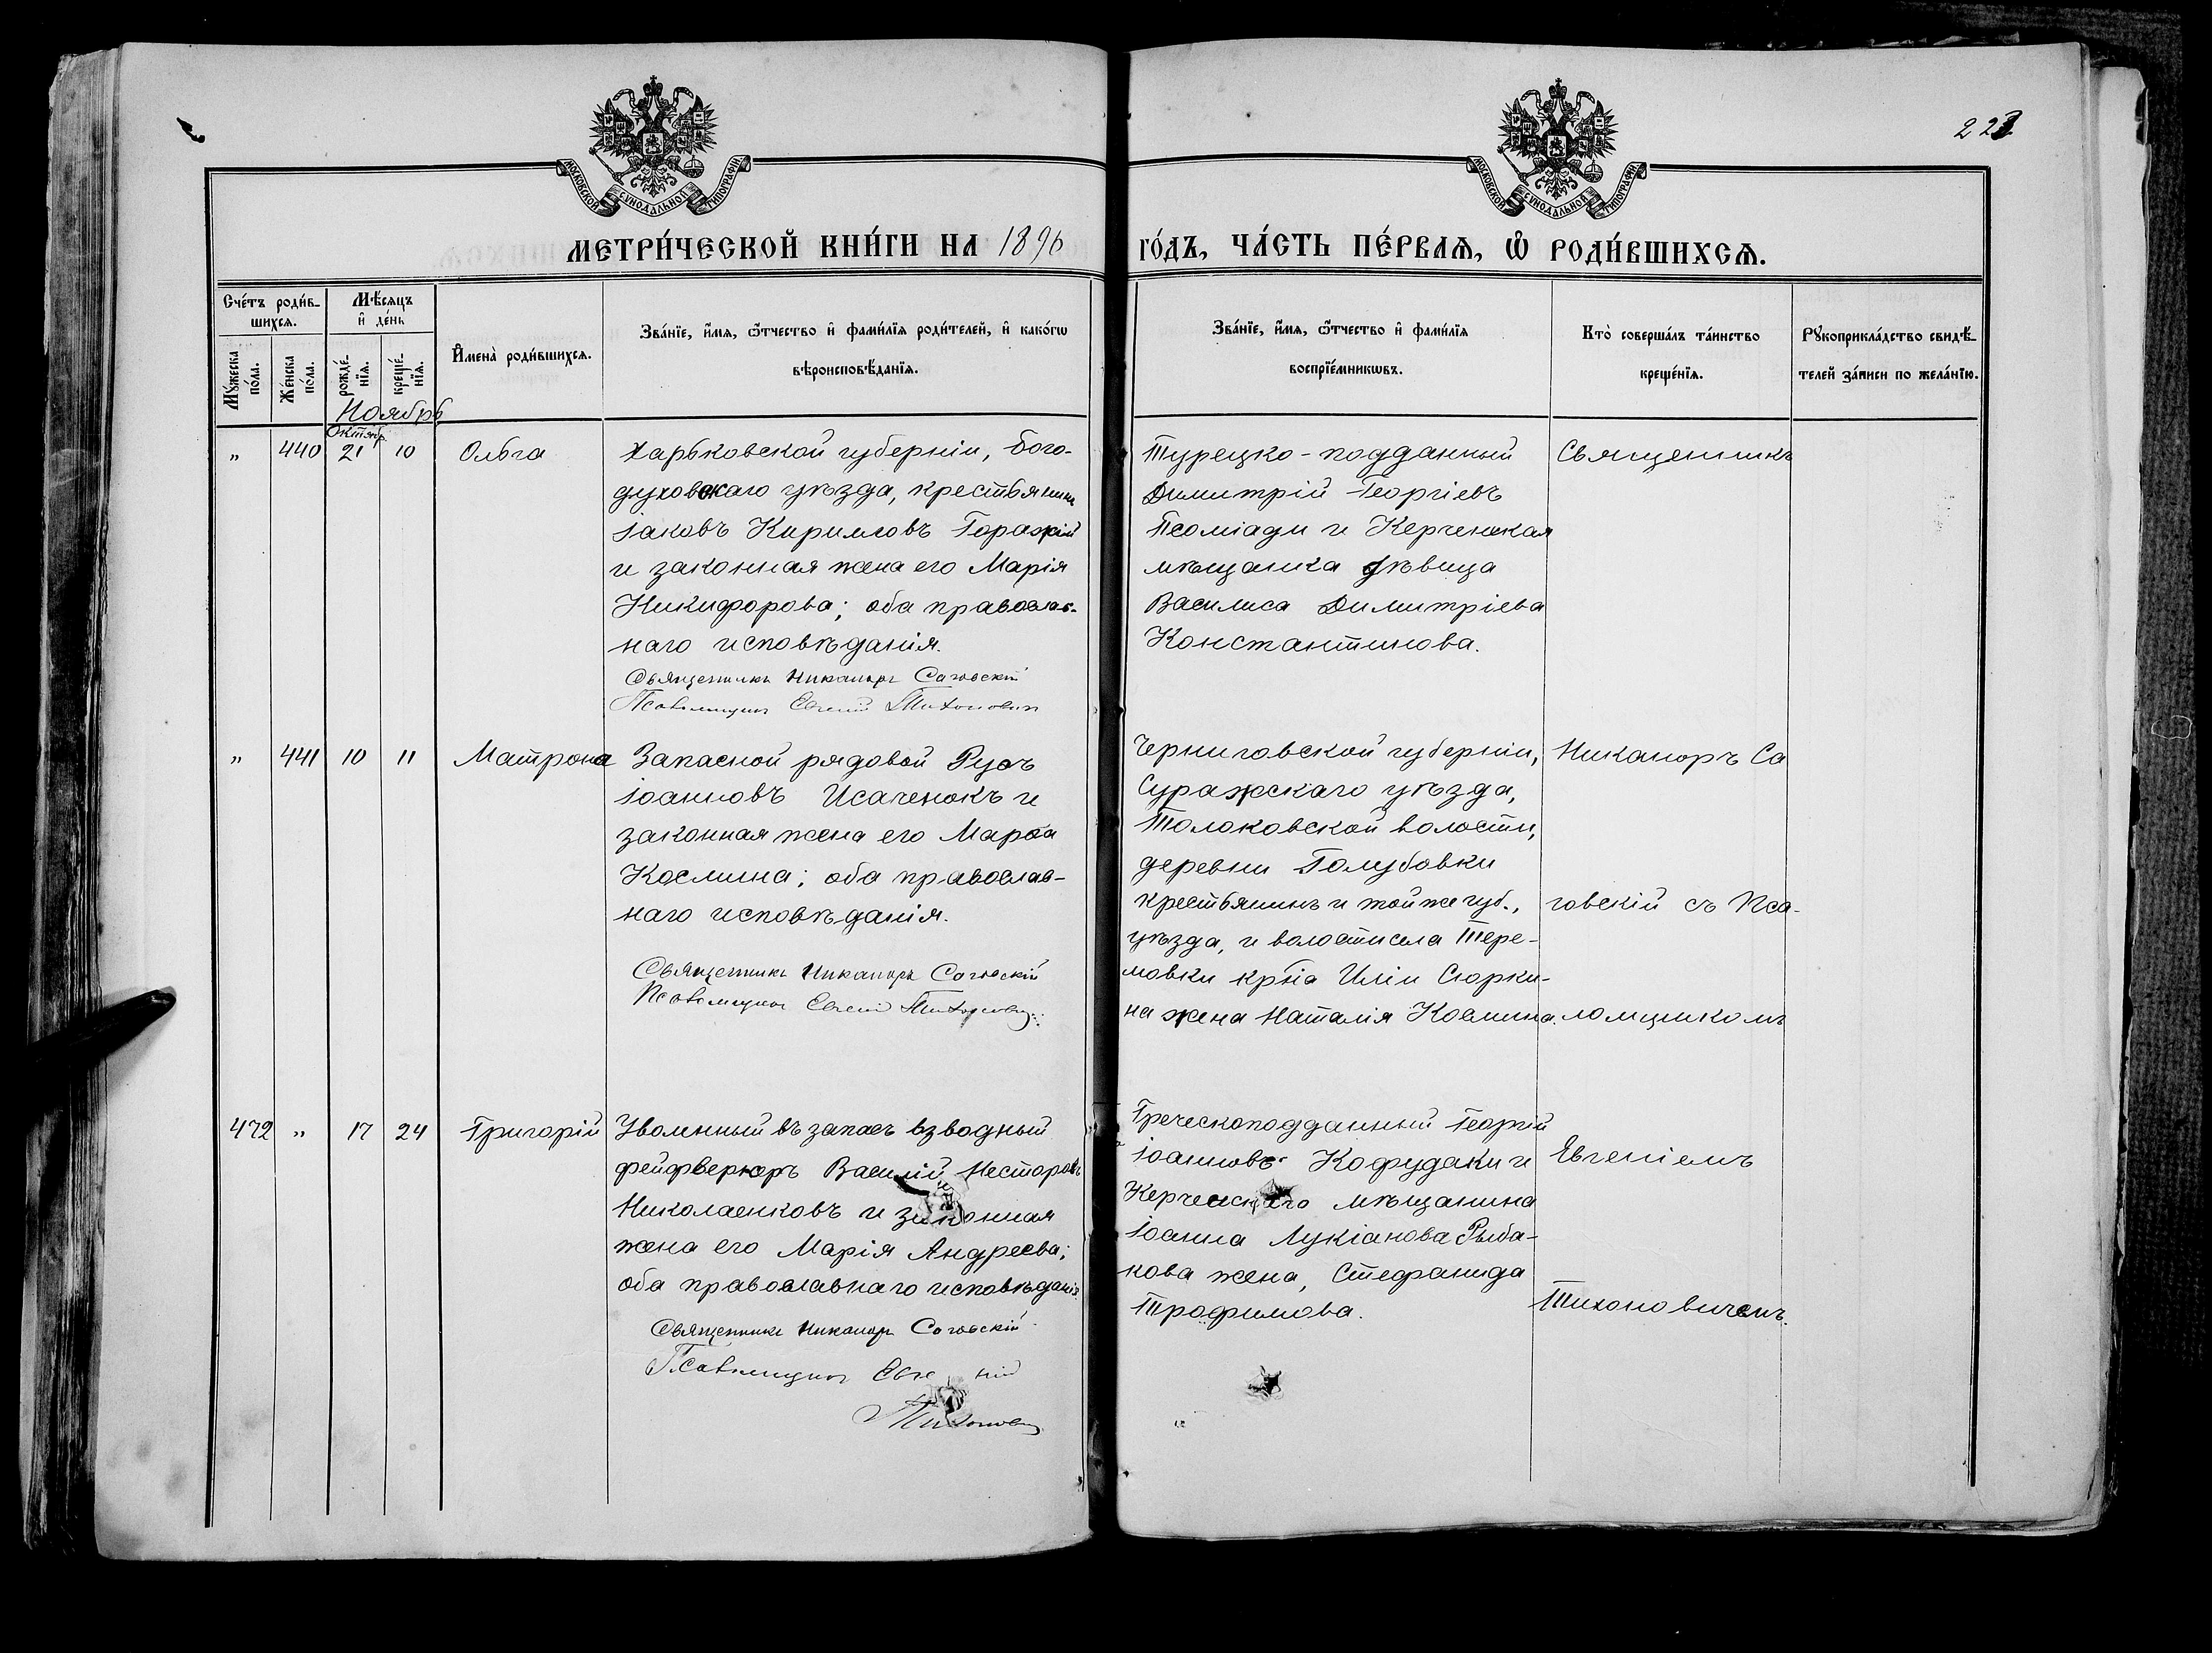 223
МОСКОВСКОЙ СѴНОДАЛЬНОЙ ТИПОГРАФІИ
МОСКОВСКОЙ СѴНОДАЛЬНОЙ ТИПОГРАФІИ
МЕТРИ́ЧЕСКОЙ КНИ́ГИ НА 1896 ГО́ДЪ, ЧА́СТЬ ПЕ́РВАѦ, Ѽ РОДИ́ВШИХСѦ.
Сче́тъ роди́в-
шихсѧ.
Мѣ́сѧцъ
и҆ де́нь
Мꙋ́жеска
по́ла.
Же́нска
по́ла.
рожде́-
нїѧ.
креще́-
нїѧ.
И҆мена̀ роди́вшихсѧ.
Зва́нїе, и҆́мѧ, ѻ҆́тчество и҆ фами́лїѧ роди́телей, и҆ како́гѡ
вѣроисповѣ́данїѧ.
Зва́нїе, и҆́мѧ, ѻ҆́тчество и҆ фами́лїѧ
воспрїе́мникѡвъ.
Кто̀ соверша́лъ та́инство
креще́нїѧ.
Рꙋкоприкла́дство свидѣ́-
телей за́писи по жела́нїю.
Ноябрь
Октябр.
„ 440 21 10 Ольга
Харьковской губерніи, Бого-
духовскаго уѣзда, крестьянинъ
Іаковъ Кирилловъ Горажій
и законная жена его Марія
Никифорова; оба православ-
наго исповѣданія.
Священникъ Никаноръ Саговскій
Псаломщикъ Евгеній Тихоновичъ
Турецко-подданный
Димитрій Георгіевъ
Псоміади и Керченская
мѣщанка дѣвица
Василиса Димитріева
Константинова.
Священникъ
„ 441 10 11 Матрона
Запасной рядовой Русъ
Іоанновъ Исаченокъ и
законная жена его Марѳа
Космина; оба православ-
наго исповѣданія.
Священникъ Никаноръ Саговскій
Псаломщикъ Евгеній Тихоновичъ
Черниговской губерніи,
Суражскаго уѣзда,
Толоковской волости,
деревни Голубовки
крестьянинъ и той же губ.,
уѣзда, и волости села Тере-
мовки кр-на Иліи Сюрки-
на жена Наталія Космина.
Никаноръ Са
говскій съ Пса-
ломщикомъ
472 „ 17 24 Григорій
Уволенный въ запасъ взводный
фейфверкеръ Василій Несторовъ
Николаенковъ и законная
жена его Марія Андреева;
оба православнаго исповѣданія.
Священникъ Никаноръ Саговскій
Псаломщикъ Евгеній
Тихонович
Греческоподданный Георгій
Іоанновъ Кофудаки и
Керченскаго мѣщанина
Іоанна Лукіанова Рыба-
кова жена, Стефанида
Трофимова.
Евгеніемъ
Тихоновичемъ.